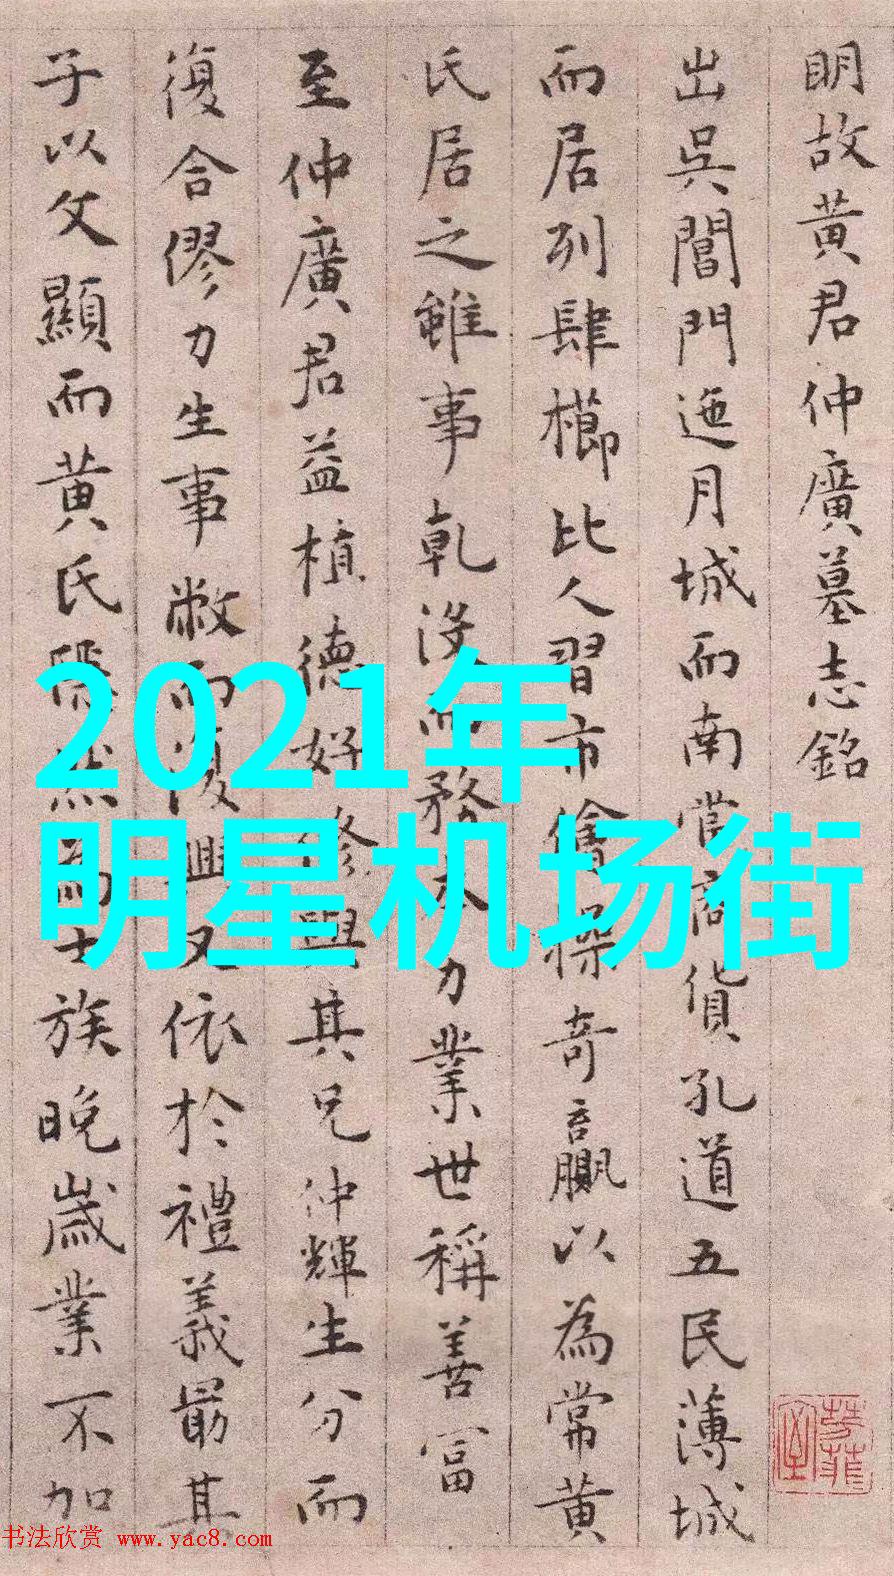 明故黄君仲廣墓志銘
出吳閶門迤月城而南當商貨孔道五民薄城
而居列肆櫛比人習市儈操奇贏以為常黄
氏居之雖事乾没而務本力業世稱善富
至仲廣君益植德好修與其兄仲輝生分而
復合僇力生事敝而復興又依於禮義最其
子以文顯而黄氏隱然為士族晚歲業不加
2021年
明星机场街
书法欣赏 www.yac8.com